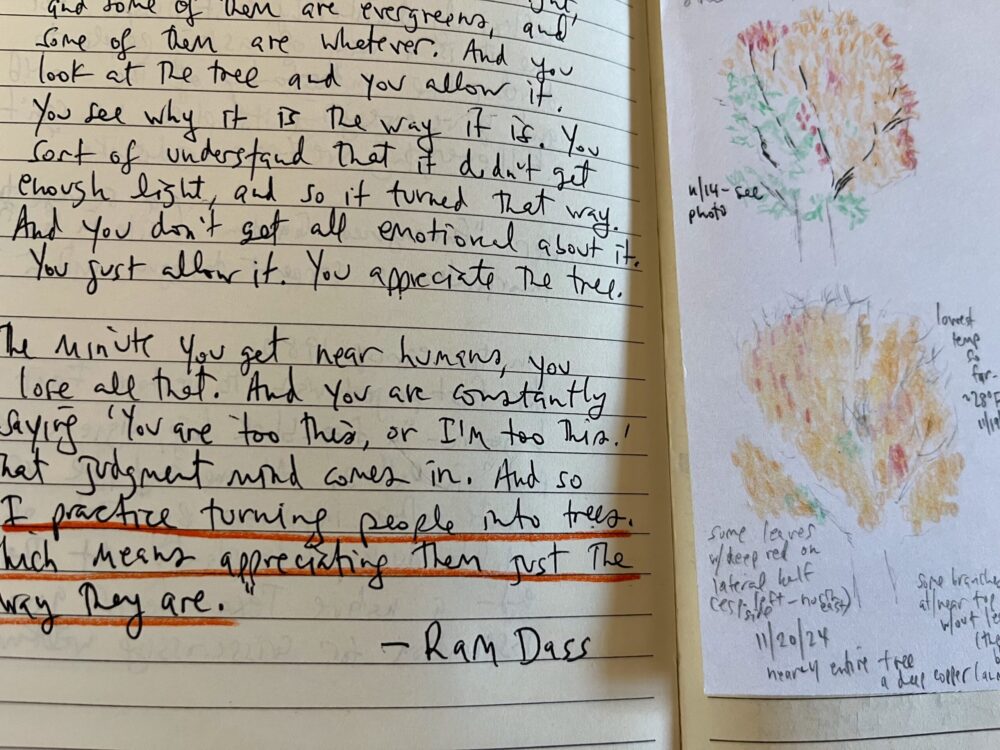 and some of them are evergreens, and
some of them are whatever. And you
look at the tree and you allow it.
You see why it is the way it is. You
sort of understand that it didn't get
enough light, and so it turned that way.
And you don't get all emotional about it.
You just allow it. You appreciate the tree.
The minute you get near humans, you
lose all that. And you are constantly
saying 'You are too this, or I'm too this.'
hat judgment mind comes in. And so
I practice turning people into trees.
hich means appreciating them just the
way they are."
- Ram Dass
11/14-see
photo
lowest
temp
so
far-
~28°F
11/19
some leaves
w/deep red on
lateral half
(esp. left-north
side east)
11/20/24
nearly entire tree
a deep copper
some branches
at/near top
w/out